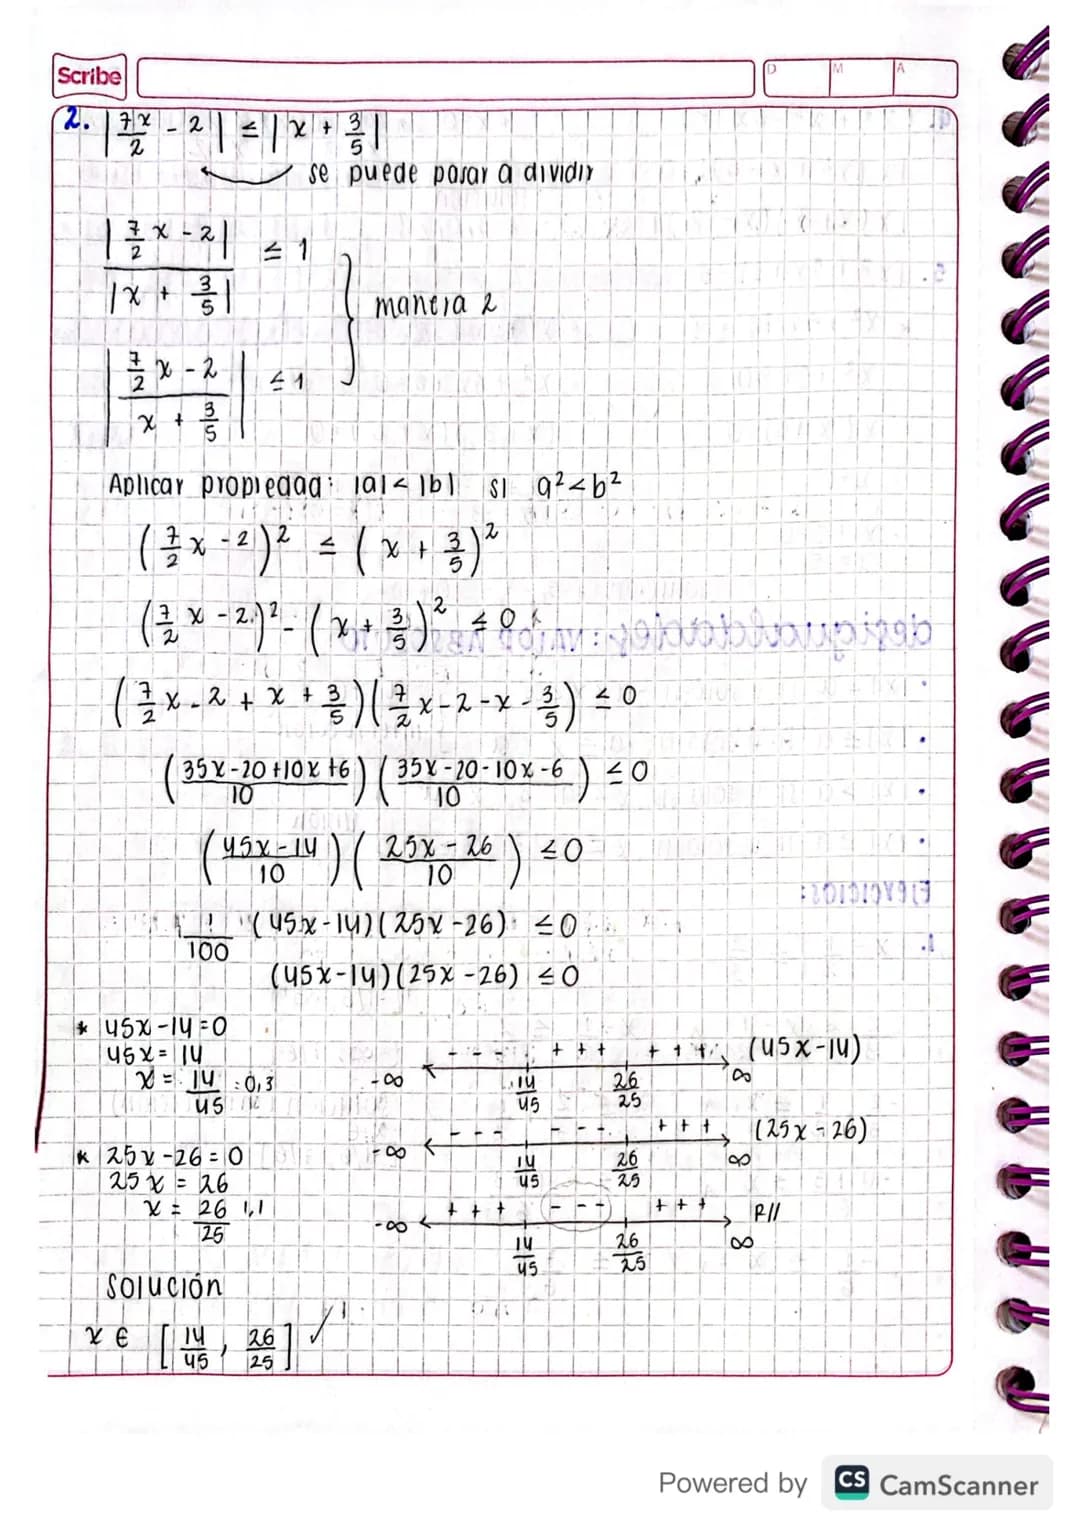 Scribe
D M A
2. |7x/2 - 2| ≤ |x + 3/5|
se puede pasar a dividir
|7/2 x - 2| / |x + 3/5| ≤ 1
manera 2
|(7/2 x - 2) / (x + 3/5)| ≤ 1
Aplicar propiedad: |a| < |b| si a² < b²
(7/2 x - 2)² ≤ (x + 3/5)²
(7/2 x - 2)² - (x + 3/5)² ≤ 0
(7/2 x - 2 + x + 3/5)(7/2 x - 2 - x - 3/5) ≤ 0
((35x - 20 + 10x + 6)/10)((35x - 20 - 10x - 6)/10) ≤ 0
((45x - 14)/10)((25x - 26)/10) ≤ 0
1/100 (45x - 14)(25x - 26) ≤ 0
(45x - 14)(25x - 26) ≤ 0
* 45x - 14 = 0
45x = 14
x = 14/45 = 0,3
- - - + + + + + + (45x - 14)
-∞ 14/45 26/25 ∞
* 25x - 26 = 0
25x = 26
x = 26/25 1,1
- - - - - - + + + (25x - 26)
-∞ 14/45 26/25 ∞
+ + + - - - + + + R//
-∞ 14/45 26/25 ∞
Solución
x ∈ [14/45, 26/25] ✓
Powered by CS CamScanner